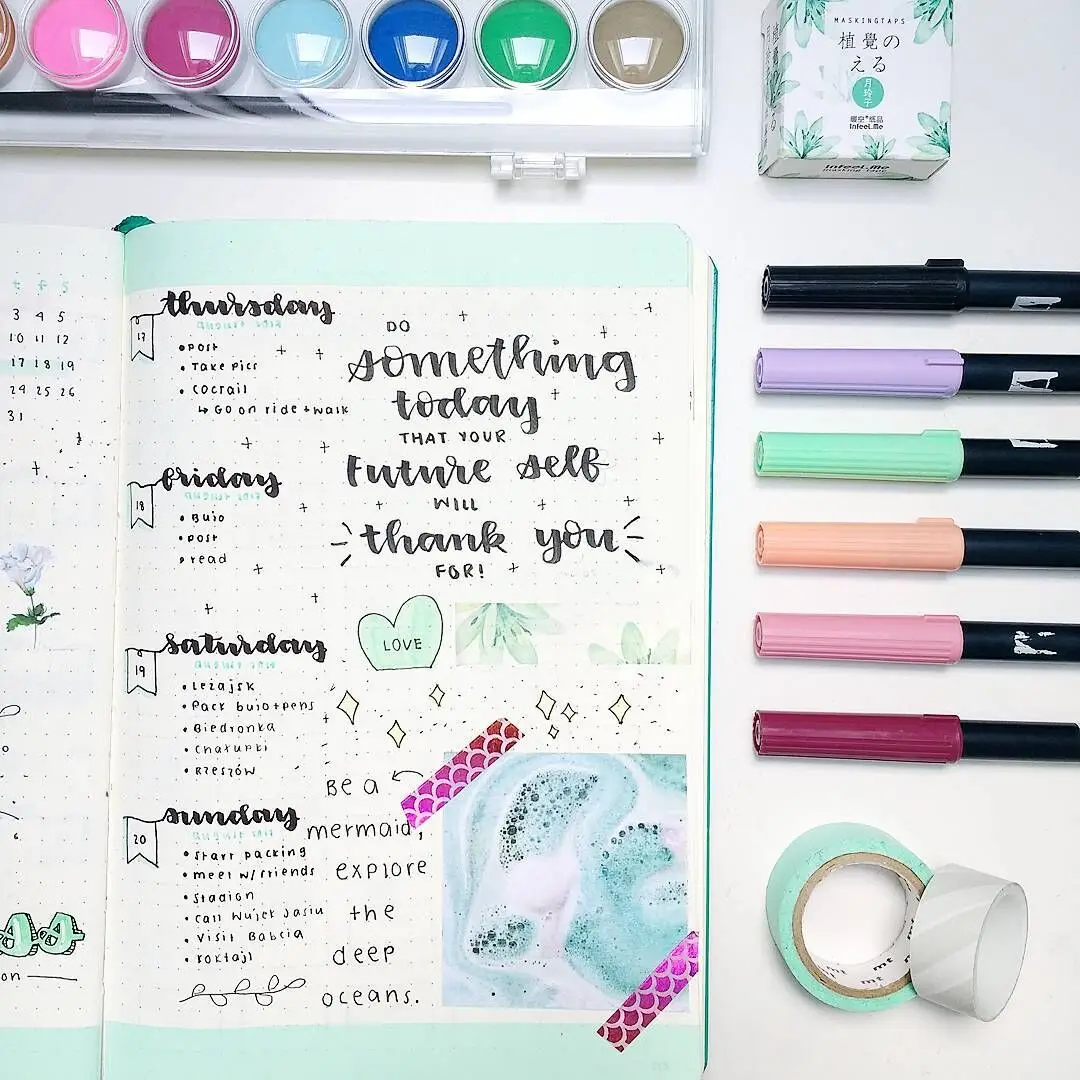 MASKINGTAPS
植覺の
える
月玲子
暖空*纸品
Infeel.Me
Infeel.Me
masking tape
T F S
3 4 5
10 11 12
17 18 19
24 25 26
31
17
thursday
august 2017
• post
• take pics
• coctail
↳ Go on ride + walk
18
friday
august 2017
• Bujo
• post
• read
19
saturday
august 2017
• Leżajsk
• Pack bujo + pens
• Biedronka
• Chałupki
• Rzeszów
20
sunday
august 2017
• start packing
• meet w/ friends
• stadion
• call wujek Jasiu
• Visit Babcia
• koktajl
DO
something
today
THAT YOUR
Future self
WILL
thank you
FOR!
LOVE
Be a
mermaid,
explore
the
deep
oceans.
mt